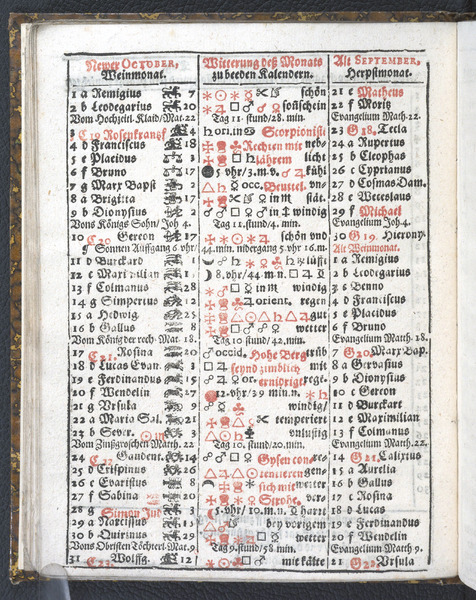 Newer OCTOBER, Weinmonat.
Witterung deß Monats zu beeden Kalendern.
Alt SEPTEMBER, Herpstmonat.
1 a Remigius 7 schön 21 e Matheus
2 b Leodegarius 20 sonschein 22 f Moritz
Vom Hochzeitl. Kleid/Mat. 22 Tag 11. stund/28. min. Evangelium Math. 22.
3 C19 Rosenkrantz 4 or. in Scorpionist 23 G18. Tecla
4 d Franciscus 18 Rechten mit neb- 24 a Rupertus
5 e Placidus 3 jährem licht 25 b Cleophas
6 f Bruno 17 5 v/3. m. v. kühl 26 c Cyprianus
7 g Marx Bapst 2 occ. Beuttel. vn- 27 d Cosmas Dam.
8 a Brigitta 17 in stät. 28 e Weceslaus
9 b Dionysius 2 in windig 29 f Michael
Vons Königs Sohn/Joh 4. Tag 11. stund/4. min. Evangelium Joh 4.
10 C20 Gereon 17 schön vnd 30 G19. Hierony.
Sonnen Auffgang 6. vhr/44. min. nidergang 5. vhr 16. m. Alt Weinmonat.
11 d Burckard 1 lüfftig 1 a Remigius
12 e Maximilian 8. vhr/44 m n. 2 b Leodegarius
13 f Colmanus 28 in windig 3 c Benno
14 g Simpertus 12 orient. regen 4 d Franciscus
15 a Hedwig 25 gut 5 e Placidus
16 b Gallus 8 wetter 6 f Bruno
Vom König der rech. Mat. 18. Tag 10. stund/42. min. Evangelium Matth. 18.
17 C21. Rosina 20 occid. Hohe Berg trüb 7 G20. Marx Bap.
18 d Lucas Evan. 3 seynd zimblich mit 8 a Gervasius
19 e Ferdinandus 15 or. ernidrigt rege- 9 b Dionysius
20 f Wendelin 27 12. vhr/39 min. n. 10 c Gereon
21 g Vrsula 9 windig/ 11 d Burckart
22 a Maria Sal. 21 temperiert 12 e Maximilian
23 b Sever. 3 vnlustig 13 f Colmanus
Vom Zinßgroschen Matth. 22 Tag 10. stund/20. min. Evangelium Matth. 22.
24 C22 Gaudent. 14 Gysen con- re- 14 G21. Calixtus
25 d Crispinus 26 tentieren gen- 15 a Aurelia
26 e Evaristus 8 sich mit weiter 16 b Gallus
27 f Sabina 20 Sixohe. ver- 17 c Rosina
28 g Simon Jud 3 5. vhr/10. m. n. hart 18 d Lucas
29 a Narcissus 15 bey vorigem 19 e Ferdinandus
30 b Quirinus 29 wetter 20 f Wendelin
Vons Obristen Töchterl. Mat. 9. Tag 9. stund/58. min. Evangelium Matth 9.
31 C23. Wolffg. 12 mit kälte 21 G22. Vrsula